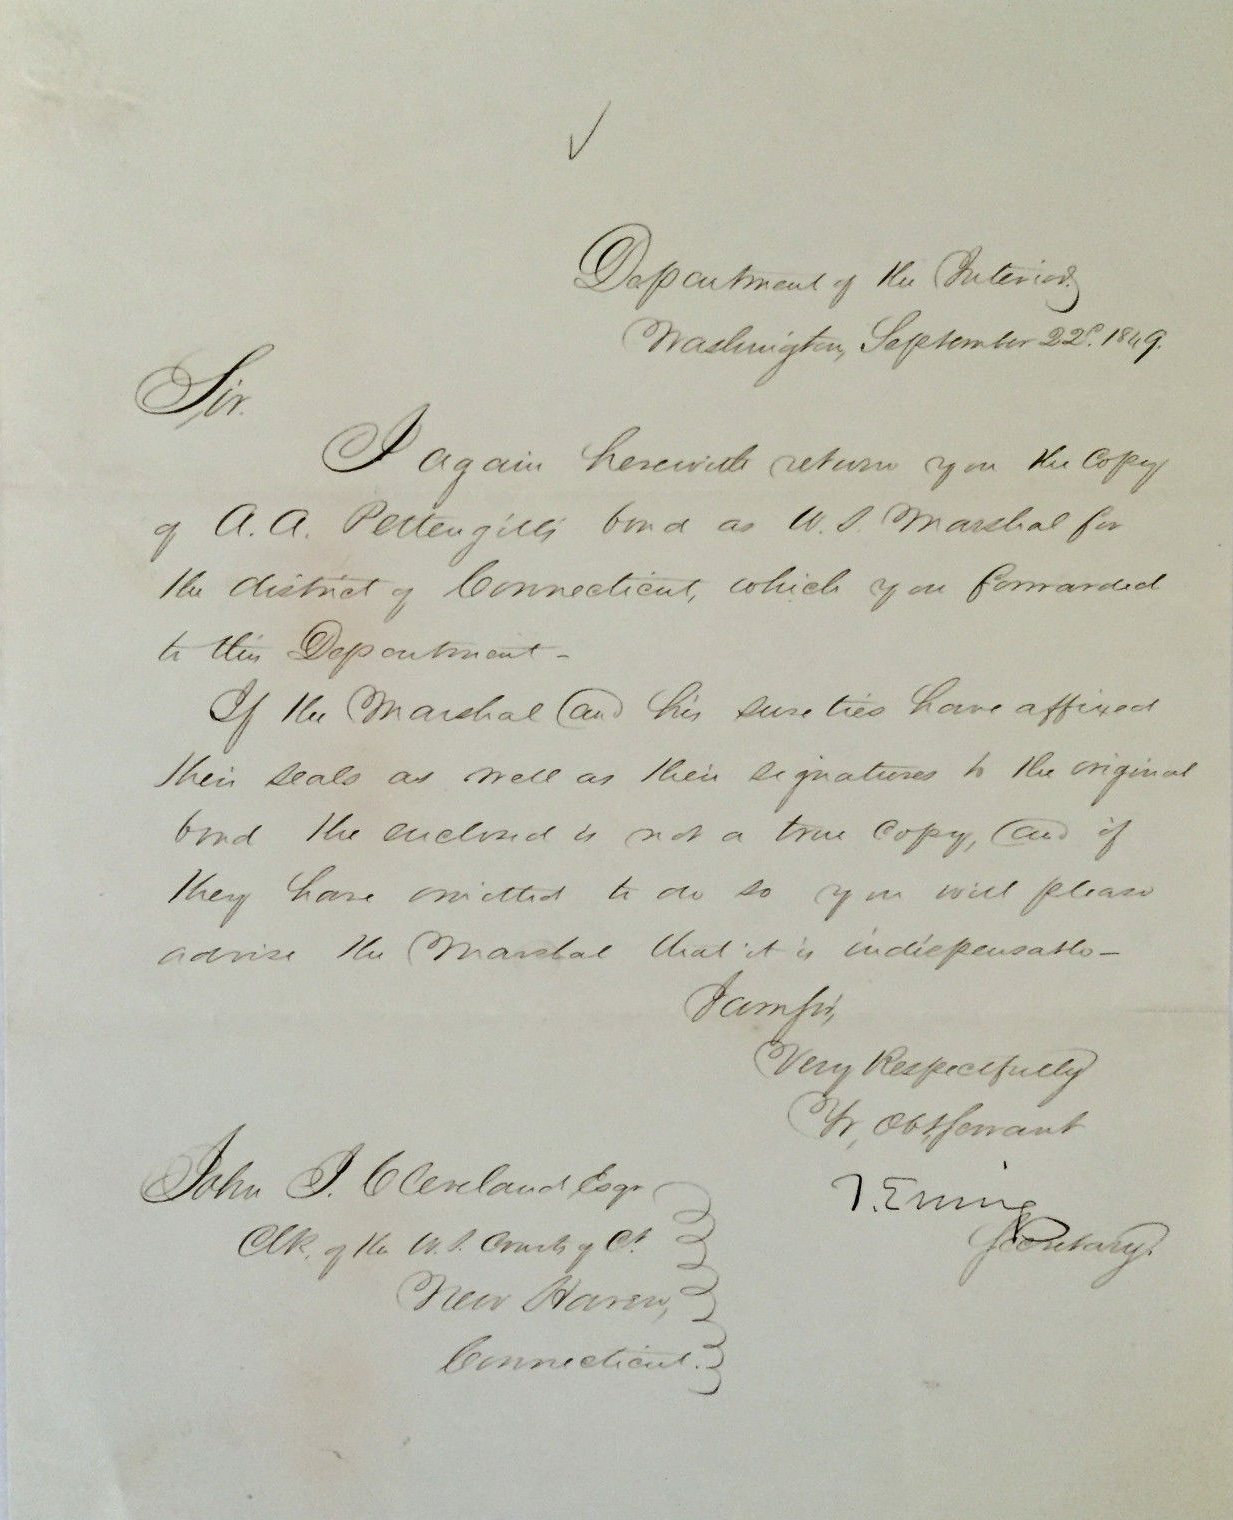 Department of the Interior.
Washington, September 22d. 1849.
Sir.
I again herewith return you the copy
of A. A. Pettengill's bond as U. S. Marshal for
the district of Connecticut, which you forwarded
to this Department -
If the Marshal and his sureties have affixed
their seals as well as their signatures to the original
bond the enclosed is not a true copy, and if
they have omitted to do so you will please
advise the Marshal that it is indispensable -
I am Sir,
Very Respectfully
Yr, Obt, Servant
T. Ewing
Secretary.
John I. Cleveland, Esqr
Clk, of the U. S. Courts of Ct.
New Haven,
Connecticut.